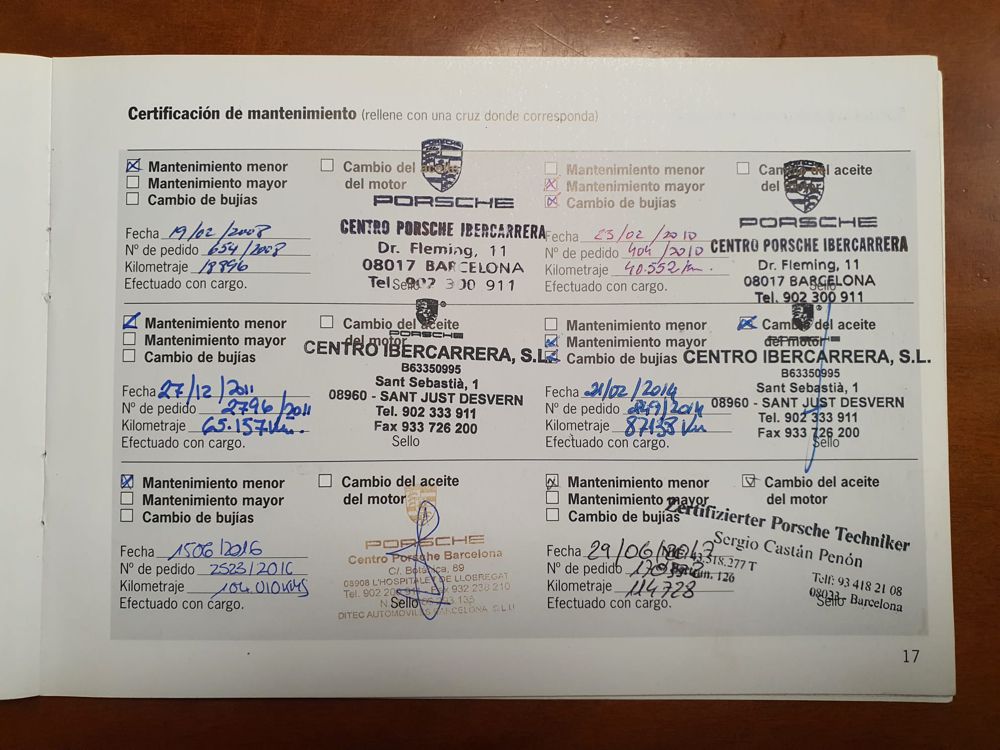 Certificación de mantenimiento (rellene con una cruz donde corresponda)
Mantenimiento menor
Mantenimiento mayor
Cambio de bujías
Cambio del aceite
del motor
Fecha 19/02/2008
Nº de pedido 654/2008
Kilometraje 18896
Efectuado con cargo.
Sello
PORSCHE
PORSCHE
CENTRO PORSCHE IBERCARRERA
Dr. Fleming, 11
08017 BARCELONA
Tel. 902 300 911
Mantenimiento menor
Mantenimiento mayor
Cambio de bujías
Cambio del aceite
del
Fecha 23/02/2010
Nº de pedido 404/2010
Kilometraje 40.552 Km.
Efectuado con cargo.
Sello
PORSCHE
CENTRO PORSCHE IBERCARRERA
Dr. Fleming, 11
08017 BARCELONA
Tel. 902 300 911
Mantenimiento menor
Mantenimiento mayor
Cambio de bujías
Cambio del aceite
del motor
Fecha 27/12/2011
Nº de pedido 2796/2011
Kilometraje 65.157 Km.
Efectuado con cargo.
Sello
PORSCHE
CENTRO IBERCARRERA, S.L.
B63350995
Sant Sebastià, 1
08960 - SANT JUST DESVERN
Tel. 902 333 911
Fax 933 726 200
Mantenimiento menor
Mantenimiento mayor
Cambio de bujías
Cambio del aceite
del motor
Fecha 21/02/2014
Nº de pedido
Kilometraje 87138 Km
Efectuado con cargo.
Sello
CENTRO IBERCARRERA, S.L.
B63350995
Sant Sebastià, 1
08960 - SANT JUST DESVERN
Tel. 902 333 911
Fax 933 726 200
Mantenimiento menor
Mantenimiento mayor
Cambio de bujías
Cambio del aceite
del motor
Fecha 1506/2016
Nº de pedido 2523/2016
Kilometraje 104.010 KMS
Efectuado con cargo.
Sello
PORSCHE
Centro Porsche Barcelona
C/. Botánica, 89
08908 L'HOSPITALET DE LLOBREGAT
Tel. 902 932 238 210
DITEC AUTOMÓVILES BARCELONA S.L.U
Mantenimiento menor
Mantenimiento mayor
Cambio de bujías
Cambio del aceite
del motor
Fecha 29/06/2017
Nº de pedido
Kilometraje 114728
Efectuado con cargo.
Sello
Zertifizierter Porsche Techniker
Sergio Castán Penón
43.518.277 T
126
Telf: 93 418 21 08
08023 - Barcelona
17